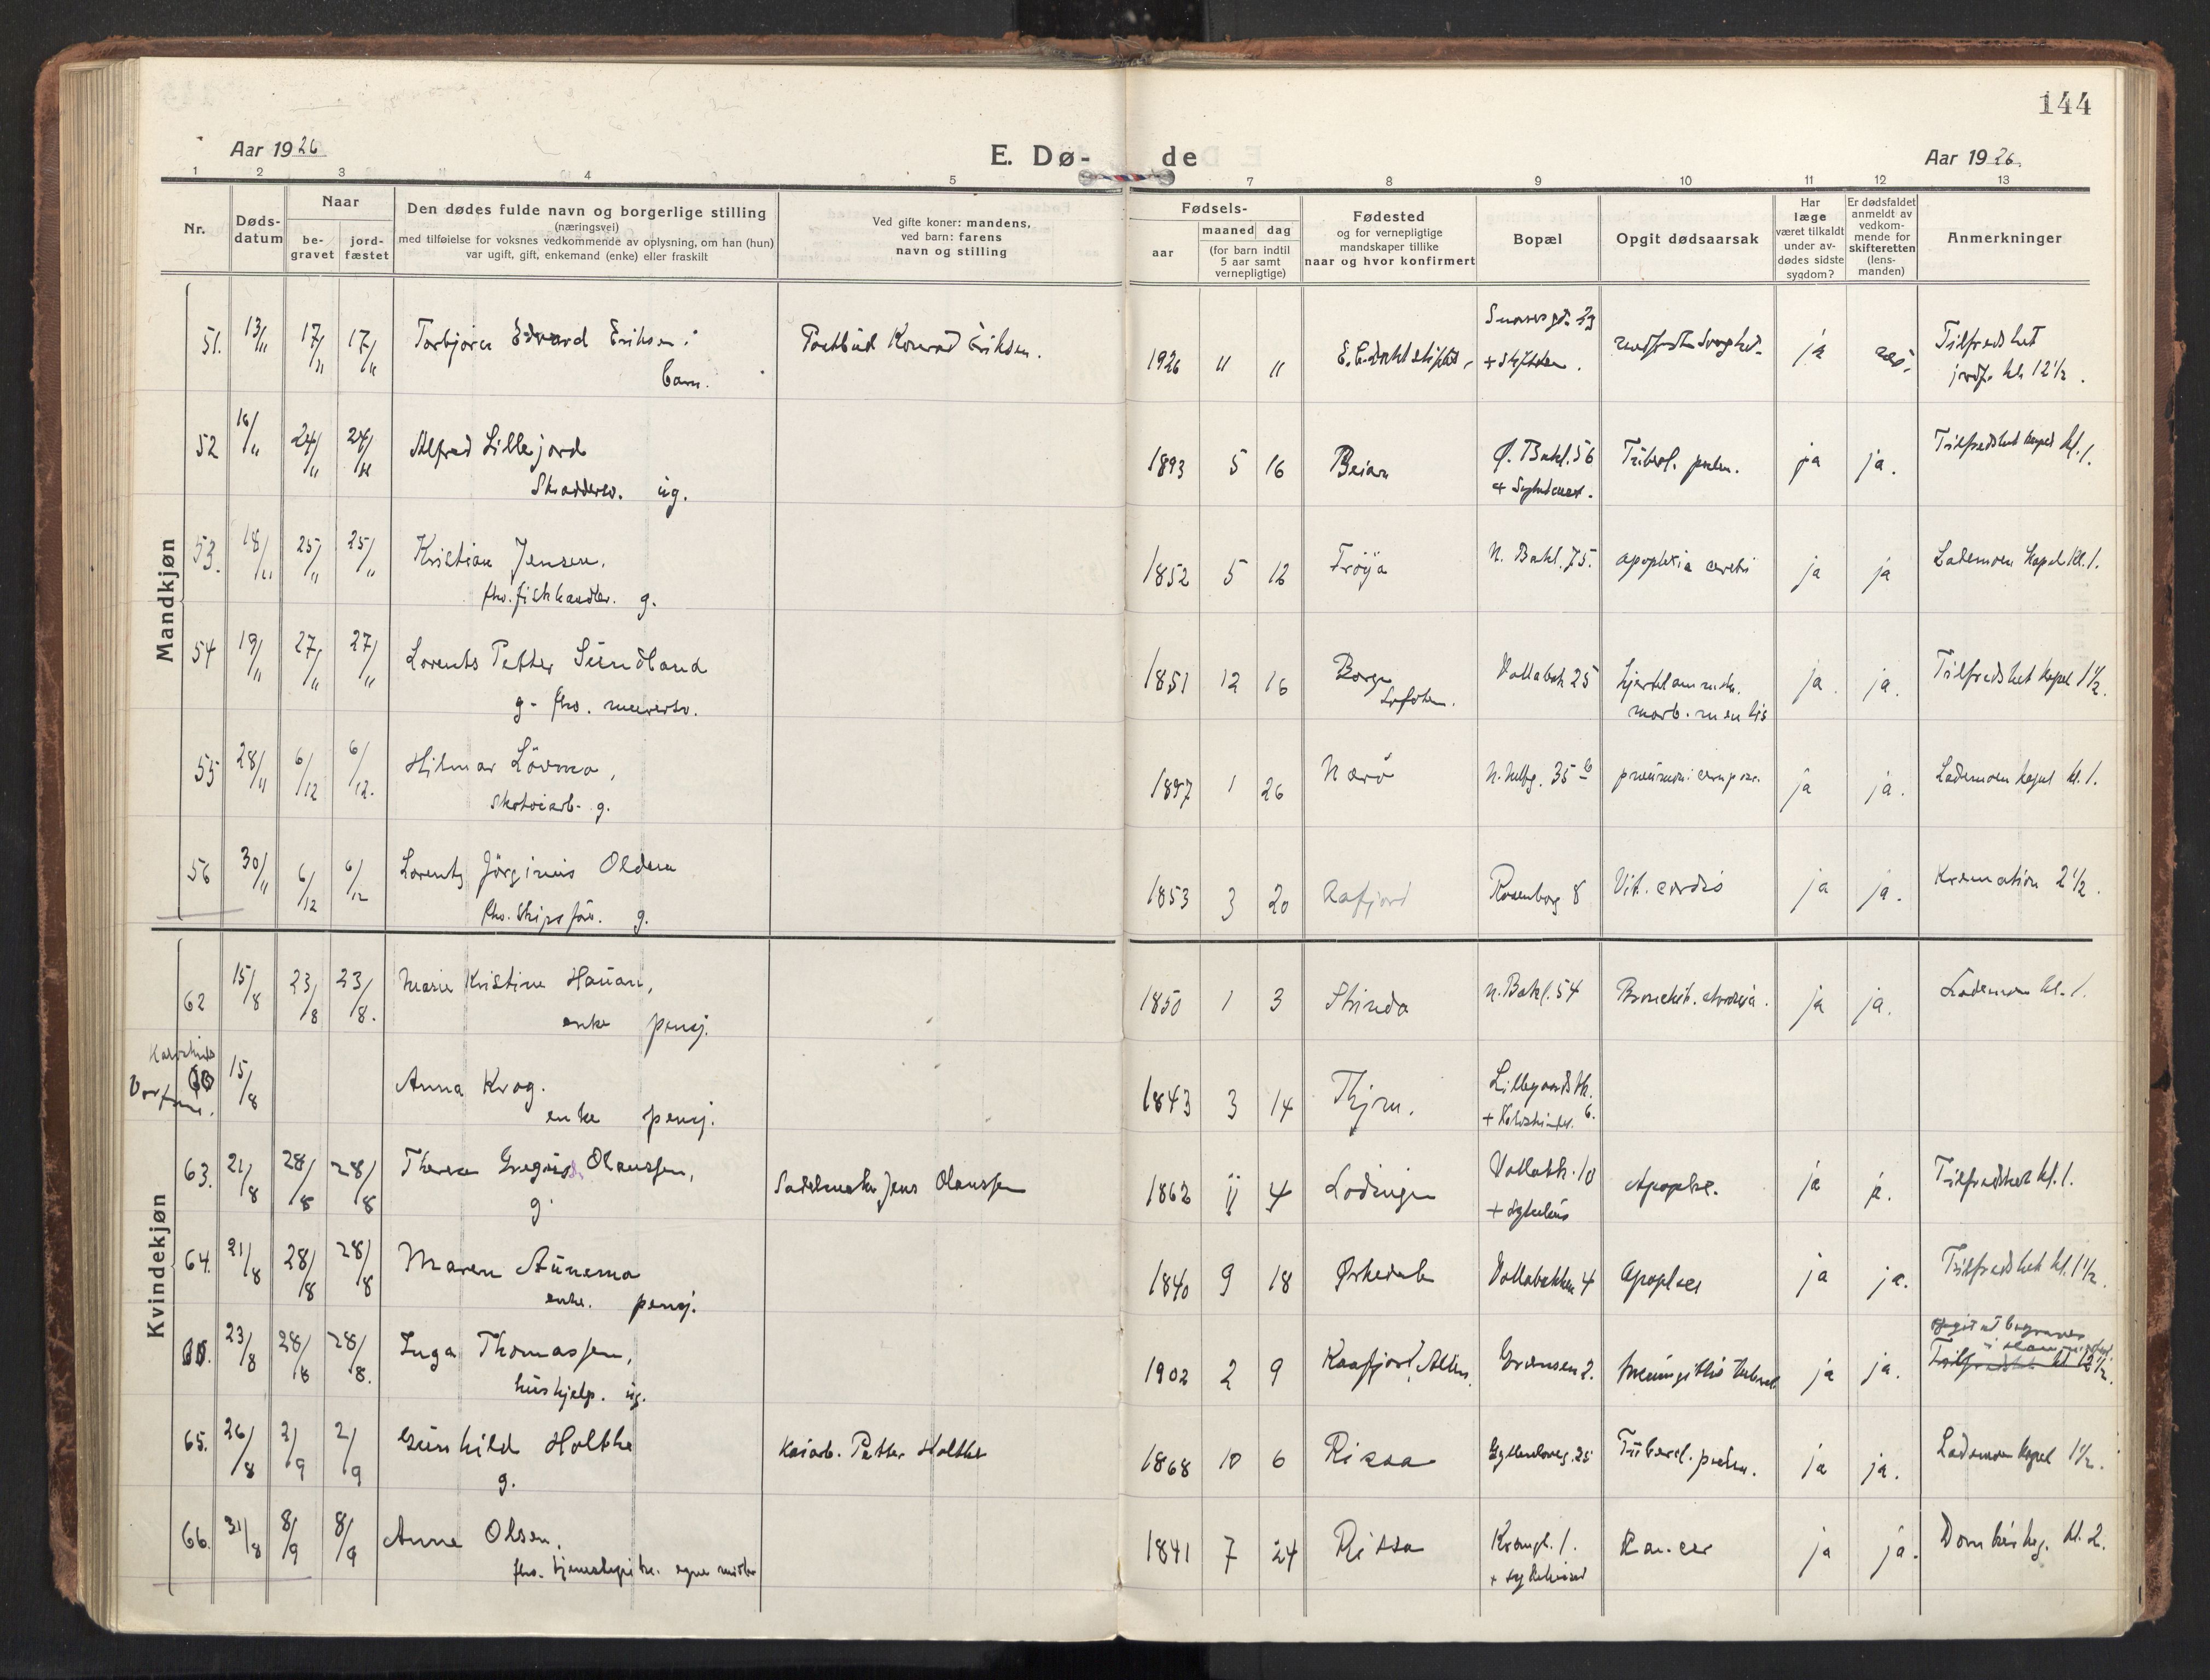 144
Aar 1926
E. Dø- de
Aar 1926.
1 2 3 4 5 7 8 9 10 11 12 13
Nr.
Døds-
datum
Naar
be-
gravet
jord-
fæstet
Den dødes fulde navn og borgerlige stilling
(næringsvei)
med tilføielse for voksnes vedkommende av oplysning, om han (hun)
var ugift, gift, enkemand (enke) eller fraskilt
Ved gifte koner: mandens,
ved barn: farens
navn og stilling
Fødsels-
aar
maaned dag
(for barn indtil
5 aar samt
vernepligtige)
Fødested
og for vernepligtige
mandskaper tillike
naar og hvor konfirmert
Bopæl
Opgit dødsaarsak
Har
læge
været tilkaldt
under av-
dødes sidste
sygdom?
Er dødsfaldet
anmeldt av
vedkom-
mende for
skifteretten
(lens-
manden)
Anmerkninger
Mandkjøn
51. 13/11 17/11 17/11 Torbjørn Edvard Eriksen: Postbud Konrad Eriksen. 1926 " " E. C. Dahl stiftels. + Stiftelsen. ja nei. Tilfredshet
barn. jordf. kl. 12 1/2.
52 16/11 24/11 24/11 Alfred Lillejord 1893 5 16 Beian Ø. Bakl. 56 Tuberl. pulm. ja ja. Tilfredshet kapel kl. 1.
Skræddersv. ug.
53. 18/11 25/11 25/11 Kristian Jensen. 1852 5 12 Frøya N. Bakl. 75. apoplexia cerebri ja ja Lademoen kapel kl. 1.
fhv. fiskhandler. g.
54 19/11 27/11 27/11 Lorents Petter Sundland 1851 12 16 Borge Vollabak 25 ja. ja. Tilfredshet kapel 1 1/2.
g. fhv. murersv. Lofoten. morb. mentis
55 28/11 6/12 6/12. Hilmar Løvmo, 1897 1 26 Nærø 35 b ja ja. Lademoen kapel kl. 1.
skotøiarb. g.
56 30/11 6/12 6/12 Lorentz Jørginius Olden 1853 3 20 Aafjord Rosenborg 8 Vit. cordis ja ja. Kremation 2 1/2.
fhv. skipsfør. g.
Kvindekjøn
62 15/8 23/8 23/8. Marie Kristine Hauan, 1850 1 3 Strinda N. Bakl. 54 Bronchit. chronica. ja ja. Lademoen kl. 1.
enke pensj.
15/8 Anna Krog. 1843 3 14 Hjem. Lillegaardsbk. 6.
enke pensj. + Kalvskindet.
63. 21/8 28/8 28/8 Therese Gregusa Olaussen, Sadelmaker Jens Olaussen 1862 11 4 Lødingen Vollabk. 10 Apoplex. ja ja. Tilfredshet kl. 1.
g. + Sykehus
64. 21/8 28/8 28/8 Maren Aunemo 1840 9 18 Ørkedalen Vollabakken 4 Apoplexi ja ja. Tilfredshet kl. 1 1/2.
enke. pensj.
23/8 28/8 28/8. Inga Thomassen, 1902 2 9 Kaafjord, Alten. Grænsen 2. meningitis tuberk ja ja. opgit at begraves
hushjelp. ug. Tilfredshet kl 12 1/2.
65. 26/8 2/9 2/9 Gunhild Holthe Kaiarb. Petter Holthe 1868 10 6 Rissa Gyldenløvesg. 25 Tubercl. pulm. ja ja. Lademoen kapel 1 1/2.
g.
66. 31/8 8/9 8/9 Anna Olsen. 1841 7 24 Rissa Krongt. 1. Kancer ja ja. Domkirkeg. kl. 2.
fhv. tjenestepike. egne midler + sykehuset